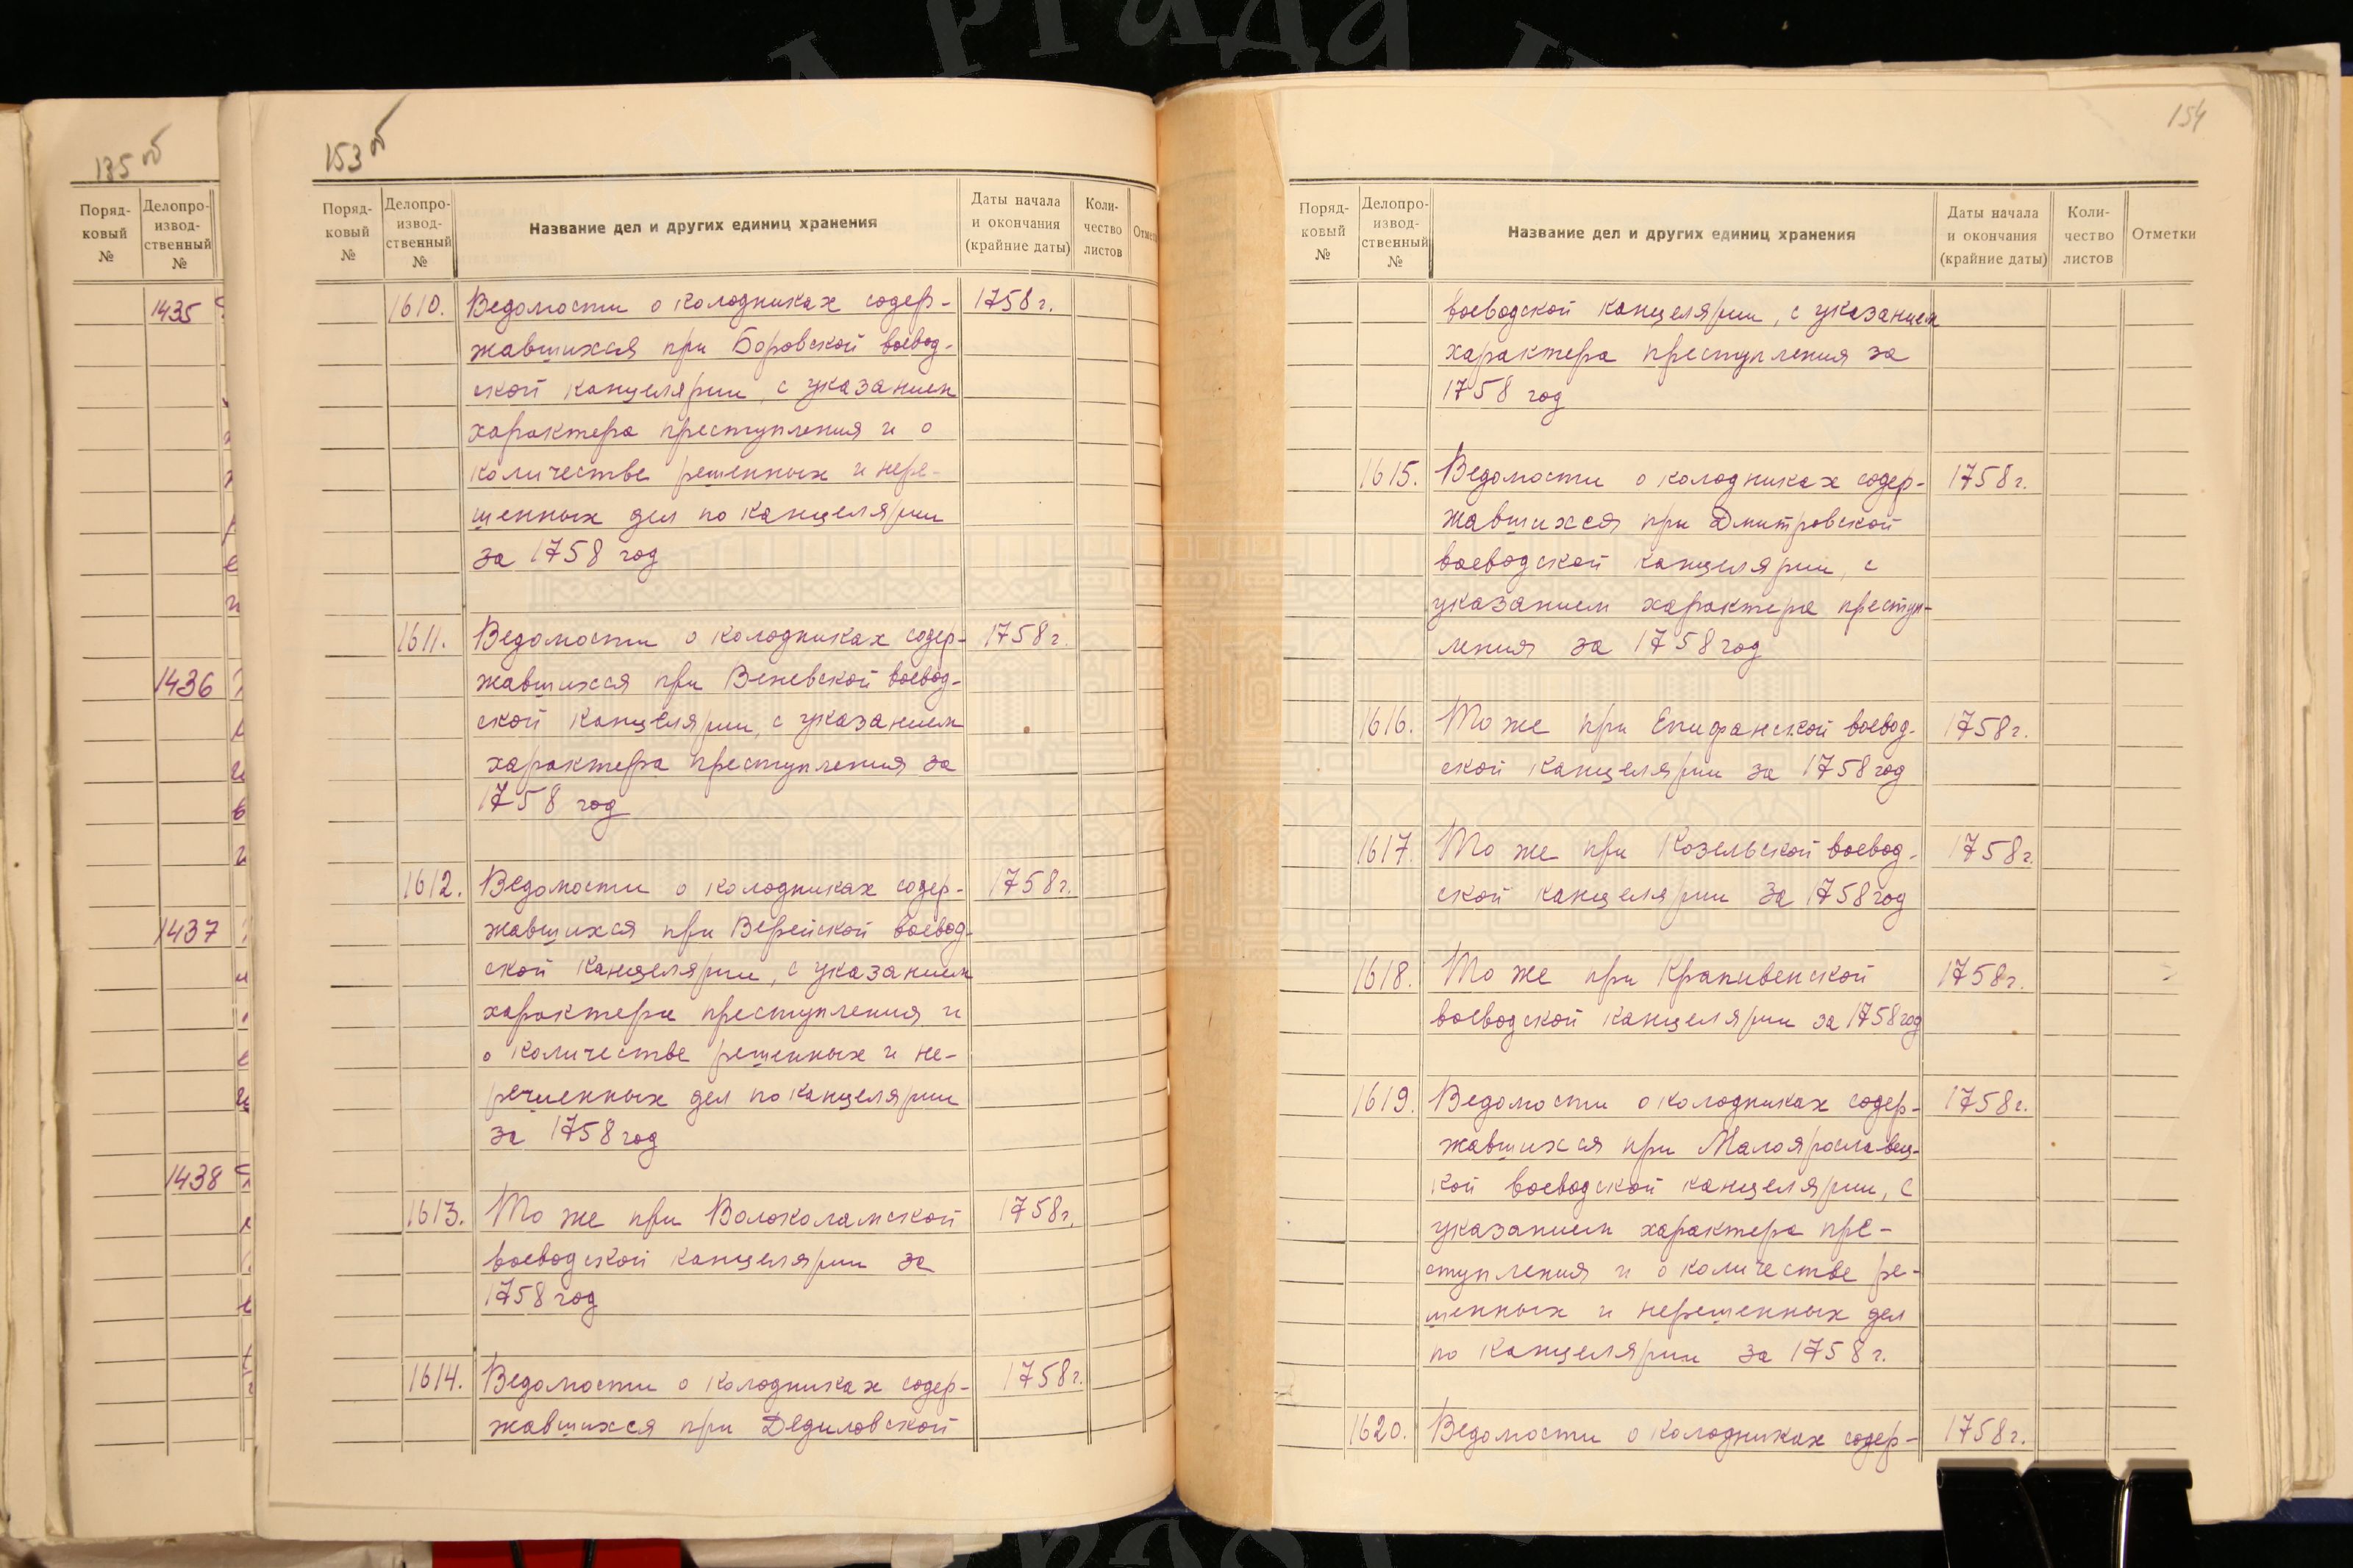 135об
Поряд-
ковый
№
Делопро-
извод-
ственный
№
1435
1436
1437
1438
153об
Поряд-
ковый
№
Делопро-
извод-
ственный
№
Название дел и других единиц хранения
Даты начала
и окончания
(крайние даты)
Коли-
чество
листов
1610. Ведомости о колодниках содер- 1758 г.
жавшихся при Боровской воевод-
ской канцелярии, с указанием
характера преступления и о
количестве решенных и нере-
шенных дел по канцелярии
за 1758 год
1611. Ведомости о колодниках содер- 1758 г.
жавшихся при Веневской воевод-
ской канцелярии, с указанием
характера преступления за
1758 год
1612. Ведомости о колодниках содер- 1758 г.
жавшихся при Верейской воевод-
ской канцелярии, с указанием
характера преступления и
о количестве решенных и не-
решенных дел по канцелярии
за 1758 год
1613. То же при Волоколамской 1758 г.
воеводской канцелярии за
1758 год
1614. Ведомости о колодниках содер- 1758 г.
жавшихся при Дедиловской
154
Поряд-
ковый
№
Делопро-
извод-
ственный
№
Название дел и других единиц хранения
Даты начала
и окончания
(крайние даты)
Коли-
чество
листов
Отметки
воеводской канцелярии, с указанием
характера преступления за
1758 год
1615. Ведомости о колодниках содер- 1758 г.
жавшихся при Дмитровской
воеводской канцелярии, с
указанием характера преступ-
ления за 1758 год
1616. То же при Епифанской воевод- 1758 г.
ской канцелярии за 1758 год
1617. То же при Козельской воевод- 1758 г.
ской канцелярии за 1758 год
1618. То же при Крапивенской 1758 г.
воеводской канцелярии за 1758 год
1619. Ведомости о колодниках содер- 1758 г.
жавшихся при Малоярославец-
кой воеводской канцелярии, с
указанием характера пре-
ступления и о количестве ре-
шенных и нерешенных дел
по канцелярии за 1758 г.
1620. Ведомости о колодниках содер- 1758 г.